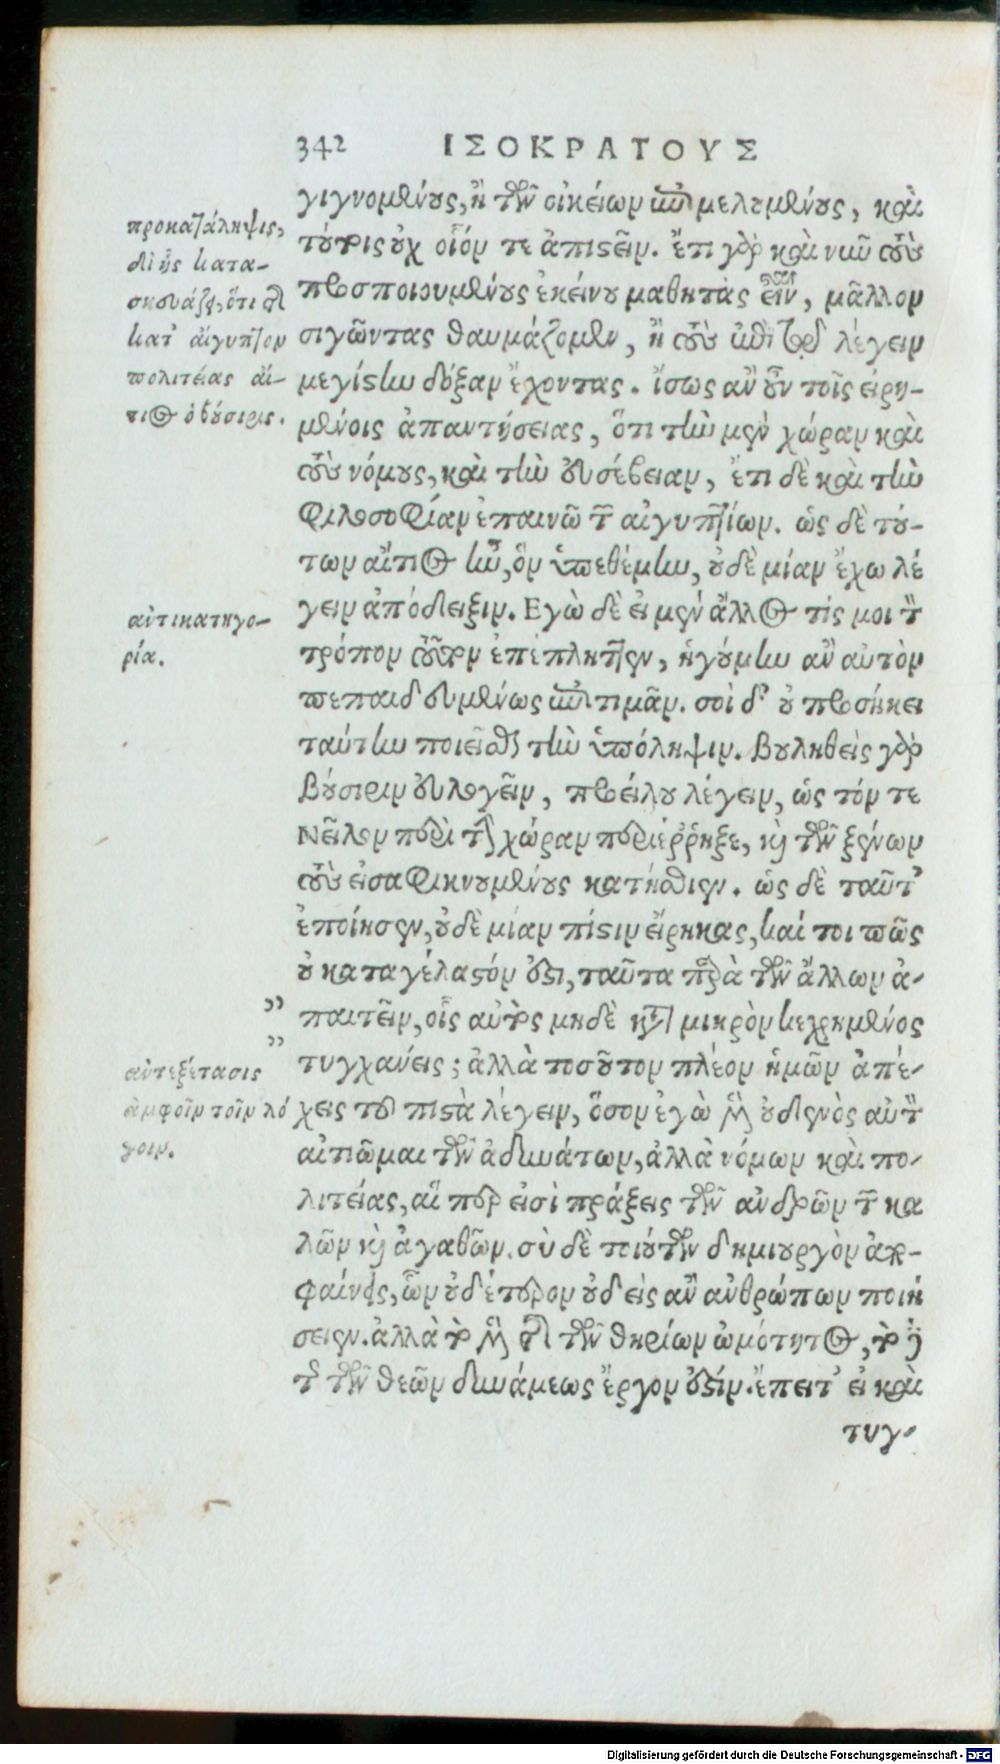 342 ΙΣΟΚΡΑΤΟΥΣ
γιγνομένους, ἢ τῶν οἰκείων ἐπιμελουμένους, καὶ
τούτοις οὐχ οἷόν τε ἀπιστεῖν. ἔτι γὰρ καὶ νῦν τοὺς
προσποιουμένους ἐκείνου μαθητὰς εἶναι, μᾶλλον
σιγῶντας θαυμάζομεν, ἢ τοὺς ἐπὶ τῷ λέγειν
μεγίστην δόξαν ἔχοντας. ἴσως ἂν οὖν τοῖς εἰρη-
μένοις ἀπαντήσειας, ὅτι τὴν μὲν χώραν καὶ
τοὺς νόμους, καὶ τὴν εὐσέβειαν, ἔτι δὲ καὶ τὴν
φιλοσοφίαν ἐπαινῶ τῶν αἰγυπτίων. ὡς δὲ τού-
των αἴτιος ἦν, ὃν ὑπεθέμην, οὐδὲ μίαν ἔχω λέ
γειν ἀπόδειξιν. Εγὼ δὲ εἰ μὲν ἄλλος τίς μοι τὸν
τρόπον τοῦτον ἐπέπληττεν, ἡγούμην ἂν αὐτὸν
πεπαιδευμένως ἐπιτιμᾶν. σοὶ δ' οὐ προσήκει
ταύτην ποιεῖσθαι τὴν ὑπόληψιν. βουληθεὶς γὰρ
βούσιριν εὐλογεῖν, προείλου λέγειν, ὡς τόν τε
Νεῖλον περὶ τὴν χώραν περιέρρηξε, καὶ τῶν ξένων
τοὺς εἰσαφικνουμένους κατήσθιεν. ὡς δὲ ταῦτ'
ἐποίησεν, οὐδὲ μίαν πίστιν εἴρηκας, καί τοι πῶς
οὐ καταγέλαστόν ἐστι, ταῦτα παρὰ τῶν ἄλλων ἀ-
παιτεῖν, οἷς αὐτὸς μηδὲ κατὰ μικρὸν κεχρημένος
τυγχάνεις; ἀλλὰ τοσοῦτον πλέον ἡμῶν ἀπέ-
χεις τοῦ πιστὰ λέγειν, ὅσον ἐγὼ μὲν οὐδενὸς αὐτὸν
αἰτιῶμαι τῶν ἀδυνάτων, ἀλλὰ νόμων καὶ πο-
λιτείας, αἵ περ εἰσὶ πράξεις τῶν ἀνδρῶν τῶν κα
λῶν καὶ ἀγαθῶν. σὺ δὲ τοιούτων δημιουργὸν ἀπο-
φαίνεις, ὧν οὐδέτερον οὐδεὶς ἂν ἀνθρώπων ποιή
σειεν. ἀλλὰ τὸ μὲν τῆς τῶν θηρίων ὠμότητος, τὸ δὲ
τῆς τῶν θεῶν δυνάμεως ἔργον ἐστίν. ἔπειτ' εἰ καὶ
τυγ-
προκατάληψις,
δι' ἧς κατα-
σκευάζει, ὅτι τῆς
κατ' αἴγυπτον
πολιτείας αἴ-
τιος ὁ βούσιρις.
ἀντικατηγο-
ρία.
ἀντεξέτασις
ἀμφοῖν τοῖν λό
γοιν.
Digitalisierung gefördert durch die Deutsche Forschungsgemeinschaft - DFG